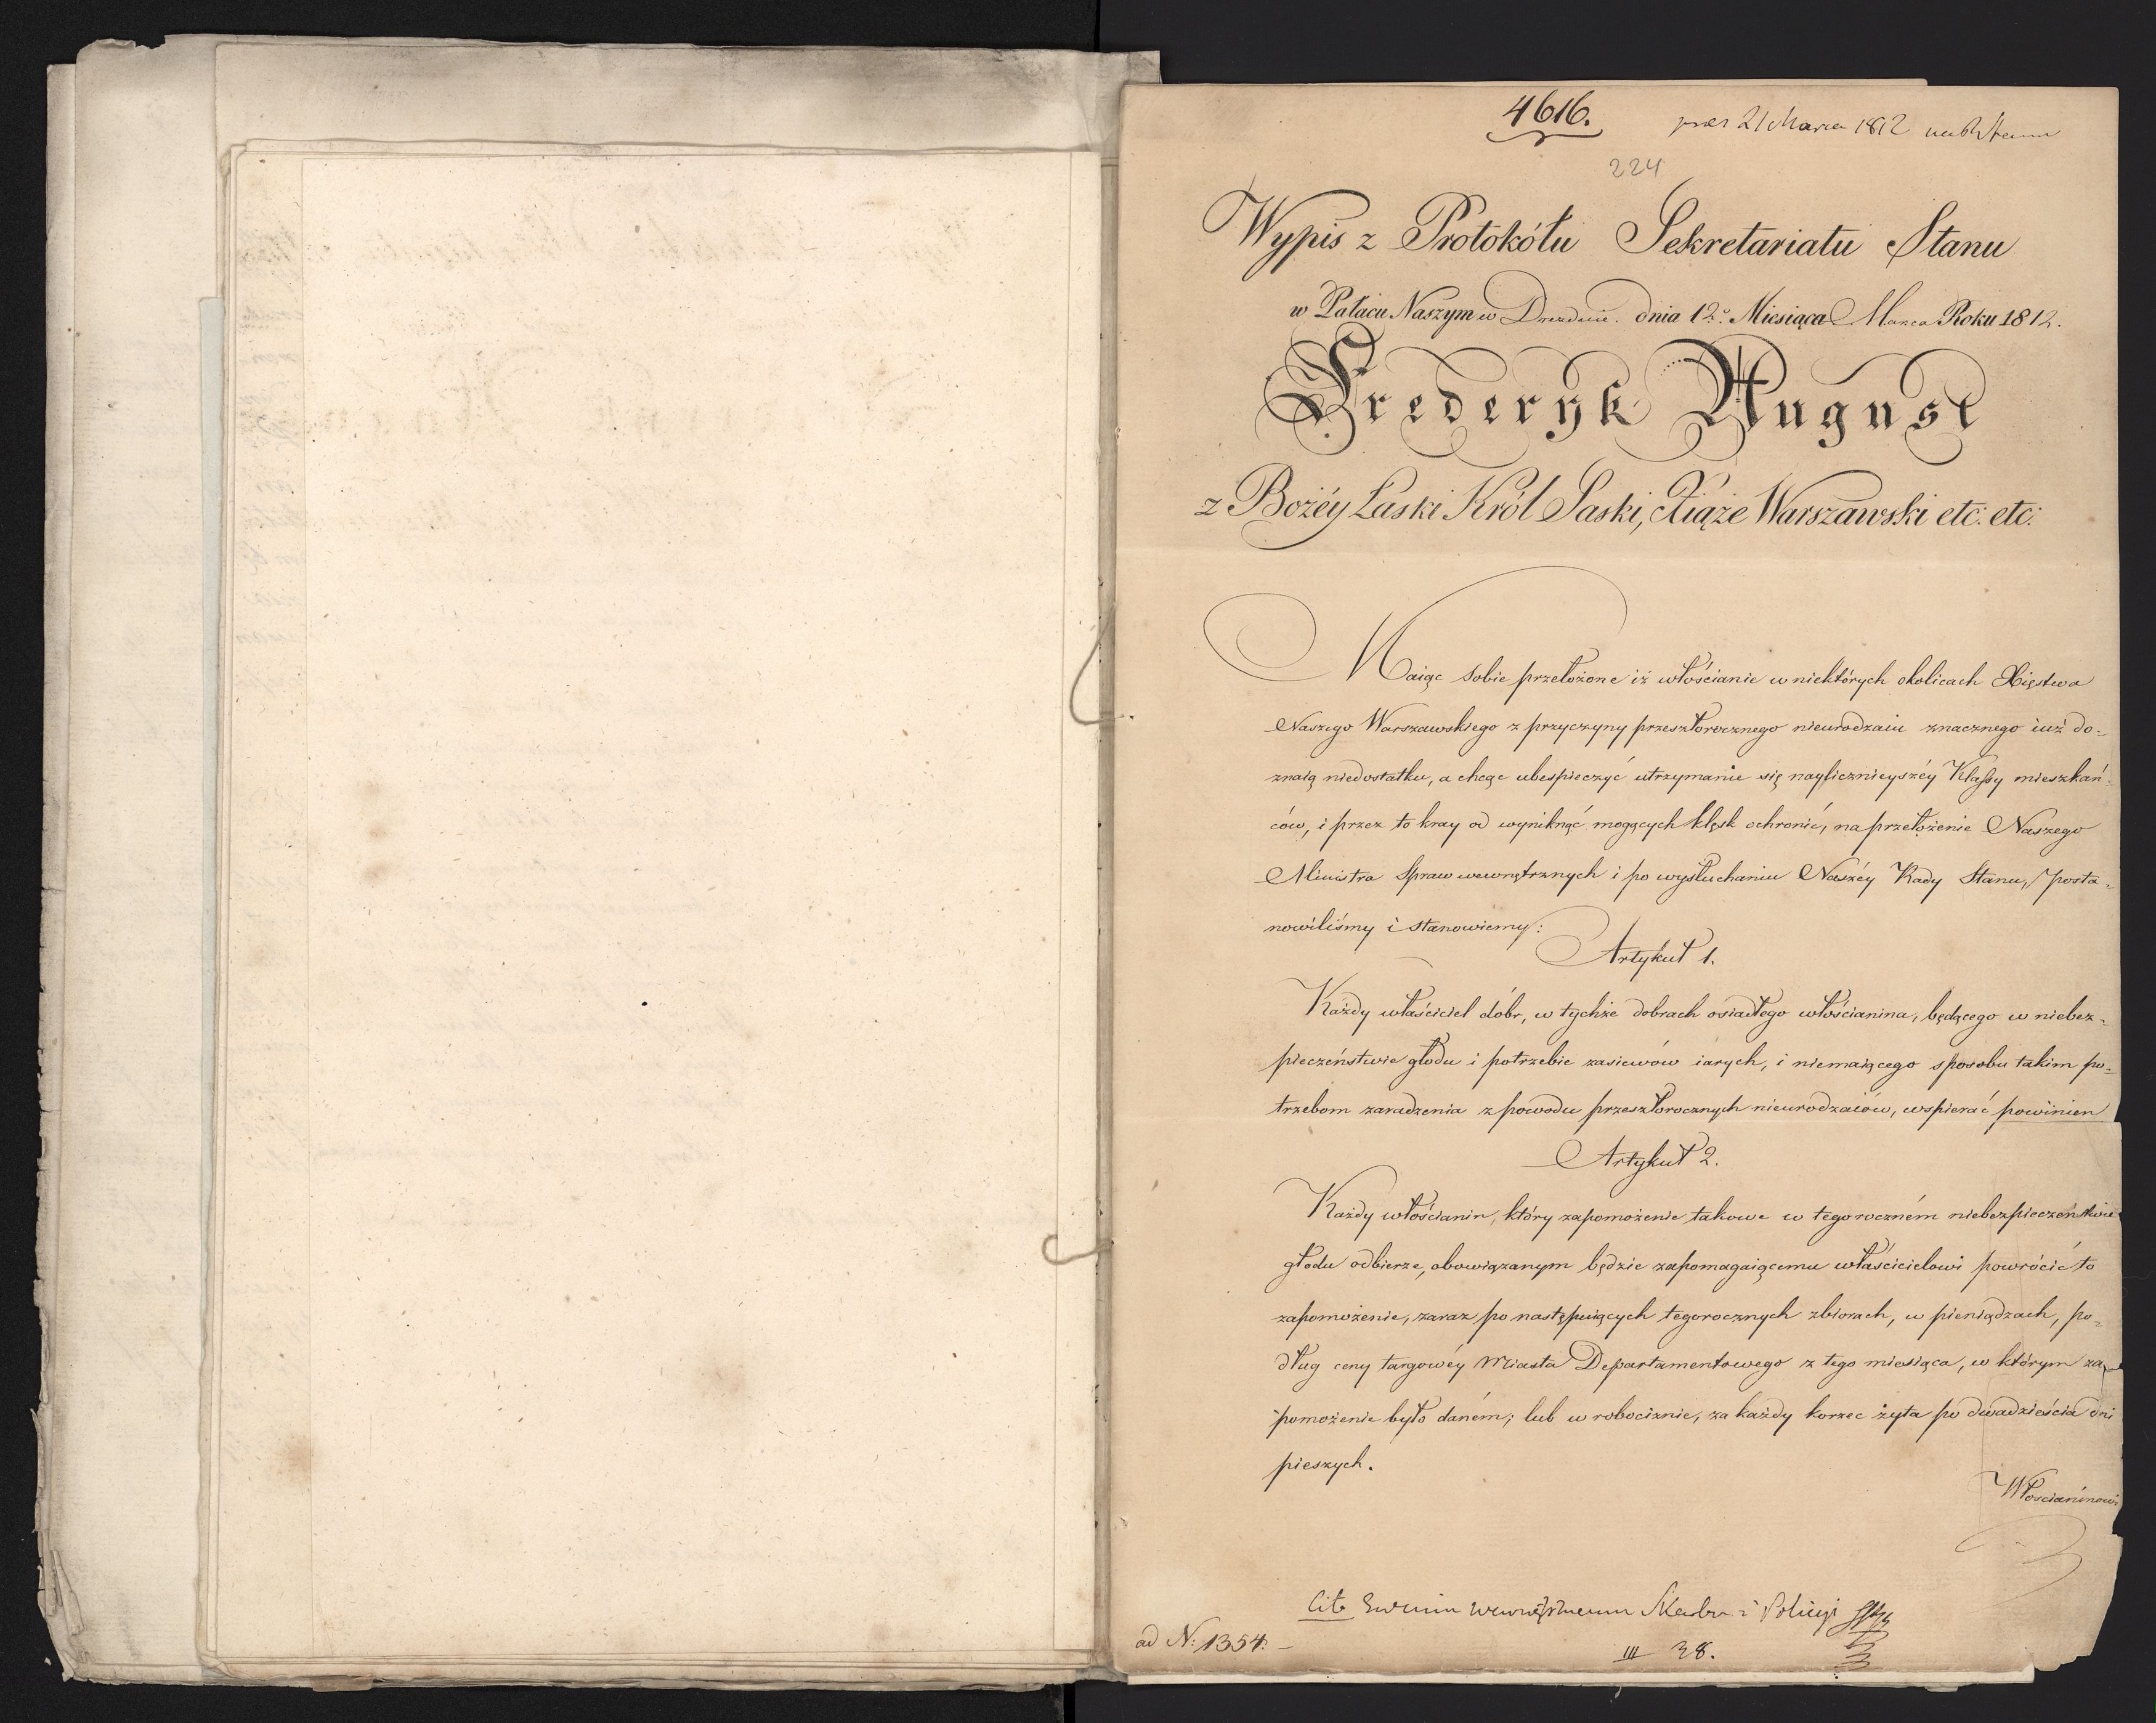 4616.
21 Marca 1812
224
Wypis z Protokółu Sekretariatu Stanu
w Pałacu Naszym w Dreznie. dnia 12° Miesiąca Marca Roku 1812.
Frederyk August
z Bożéy Łaski Król Saski, Xiąże Warszawski etc: etc:
Maiąc sobie przełożone iż włościanie w niektórych okolicach Xięstwa
Naszego Warszawskiego z przyczyny przeszłorocznego nieurodzaiu znacznego iuż do-
znaią niedostatku, a chcąc ubespieczyć utrzymanie się nayliczniejszéy Klassy mieszkań-
ców, i przez to kray od wyniknąć mogących klęsk ochronić, na przełożenie Naszego
Ministra Spraw wewnętrznych i po wysłuchaniu Naszéy Rady Stanu, posta-
nowiliśmy i stanowiemy:
Artykuł 1.
Każdy właściciel dóbr, w tychże dobrach osiadłego włościanina, będącego w niebez-
pieczeństwie głodu i potrzebie zasiewów iarych, i niemaiącego sposobu takim po-
trzebom zaradzenia z powodu przeszłorocznych nieurodzaiów, wspierać powinien
Artykuł 2.
Każdy włościanin, który zapomożenie takowe w tegoroczném niebezpieczeństwie
głodu odbierze, obowiązanym będzie zapomagaiącemu właścicielowi powrócić to
zapomożenie, zaraz po następuiących tegorocznych zbiorach, w pieniądzach, po-
dług ceny targowéy Miasta Departamentowego z tego miesiąca, w którym za-
pomożenie było daném; lub w robociznie, za każdy korzec żyta po dwadzieścia dni
pieszych.
Włościaninowi
Cito Skarbu i Policyi
ad N: 1354. -
III 38.